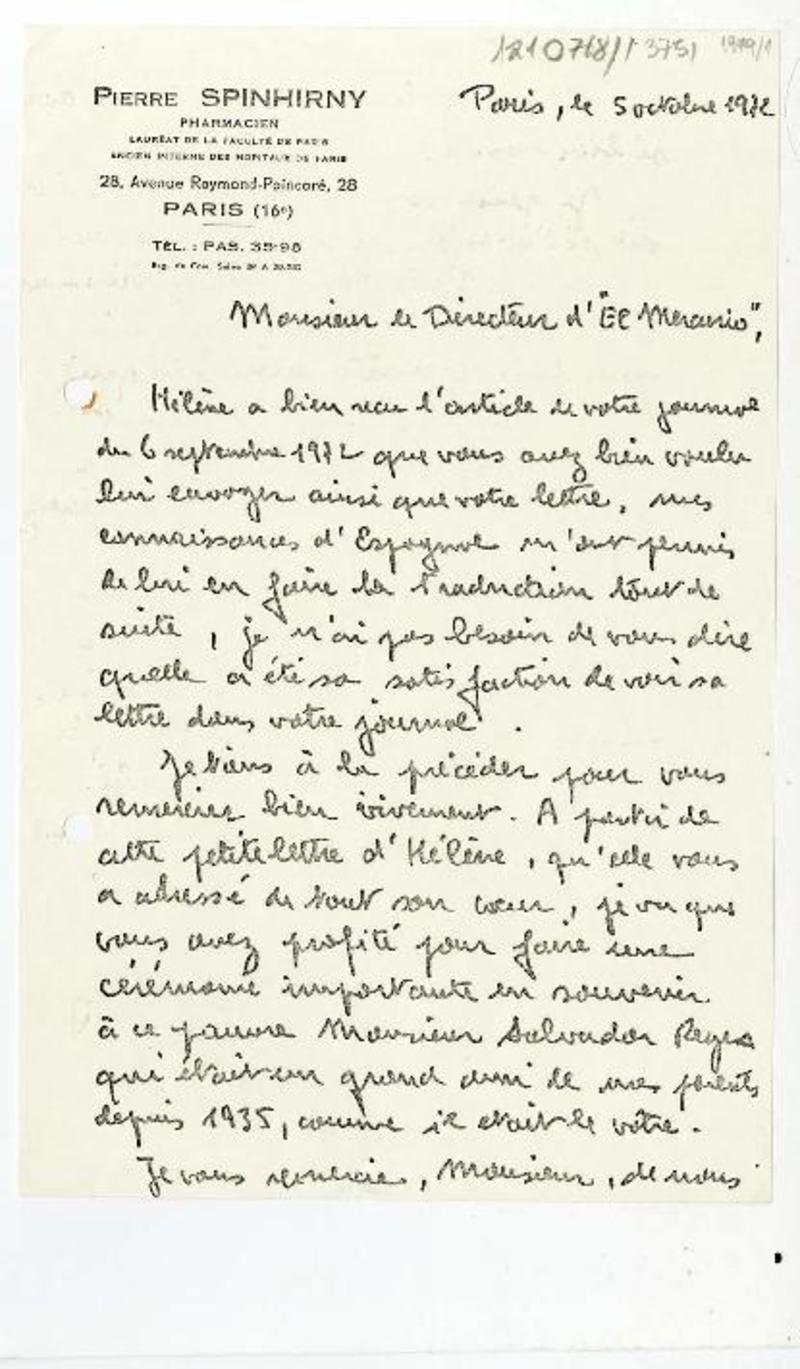 121078/1 3751 1979/1
PIERRE SPINHIRNY
Paris, le 5 octobre 1972
PHARMACIEN
LAURÉAT DE LA FACULTÉ DE PARIS
ANCIEN INTERNE DES HOPITAUX DE PARIS
28, Avenue Raymond-Poincaré, 28
PARIS (16e)
TÉL. : PAS. 35-98
Monsieur le Directeur d'"El Mercurio",
Hélène a bien reçu l'article de votre journal
du 6 septembre 1972 que vous avez bien voulu
lui envoyer ainsi que votre lettre, mes
connaissances d'Espagnol m'ont permis
de lui en faire la traduction tout de
suite, je n'ai pas besoin de vous dire
quelle a été sa satisfaction de voir sa
lettre dans votre journal.
Je tiens à la précéder pour vous
remercier bien vivement. A partir de
cette petite lettre d'Hélène, qu'elle vous
a adressé de tout son cœur, je vu que
vous avez profité pour faire une
cérémonie importante en souvenir
à ce pauvre Monsieur Salvador Reyes
qui était un grand ami de mes parents
depuis 1935, comme il était le vôtre.
Je vous remercie, Monsieur, de nous